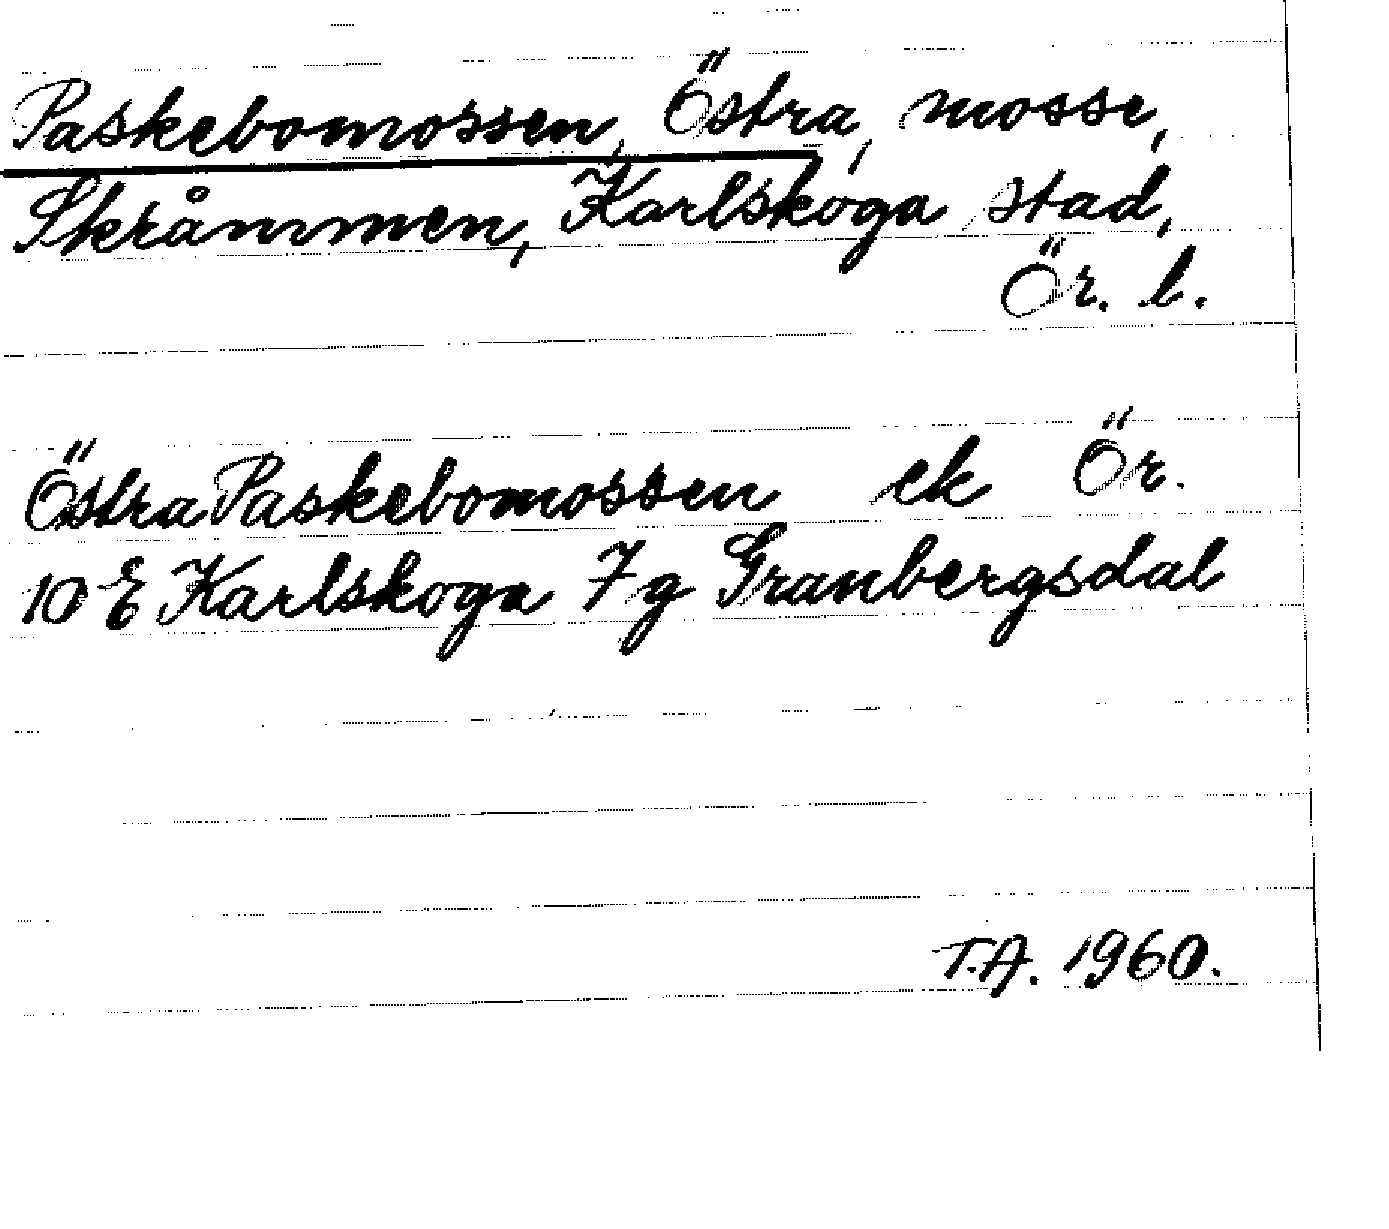 Paskebomossen, Östra, mosse,
Skråmmen, Karlskoga stad,
Ör. l.
Östra Paskebomossen ek Ör.
10 E Karlskoga 7g Granbergsdal
T.A. 1960.